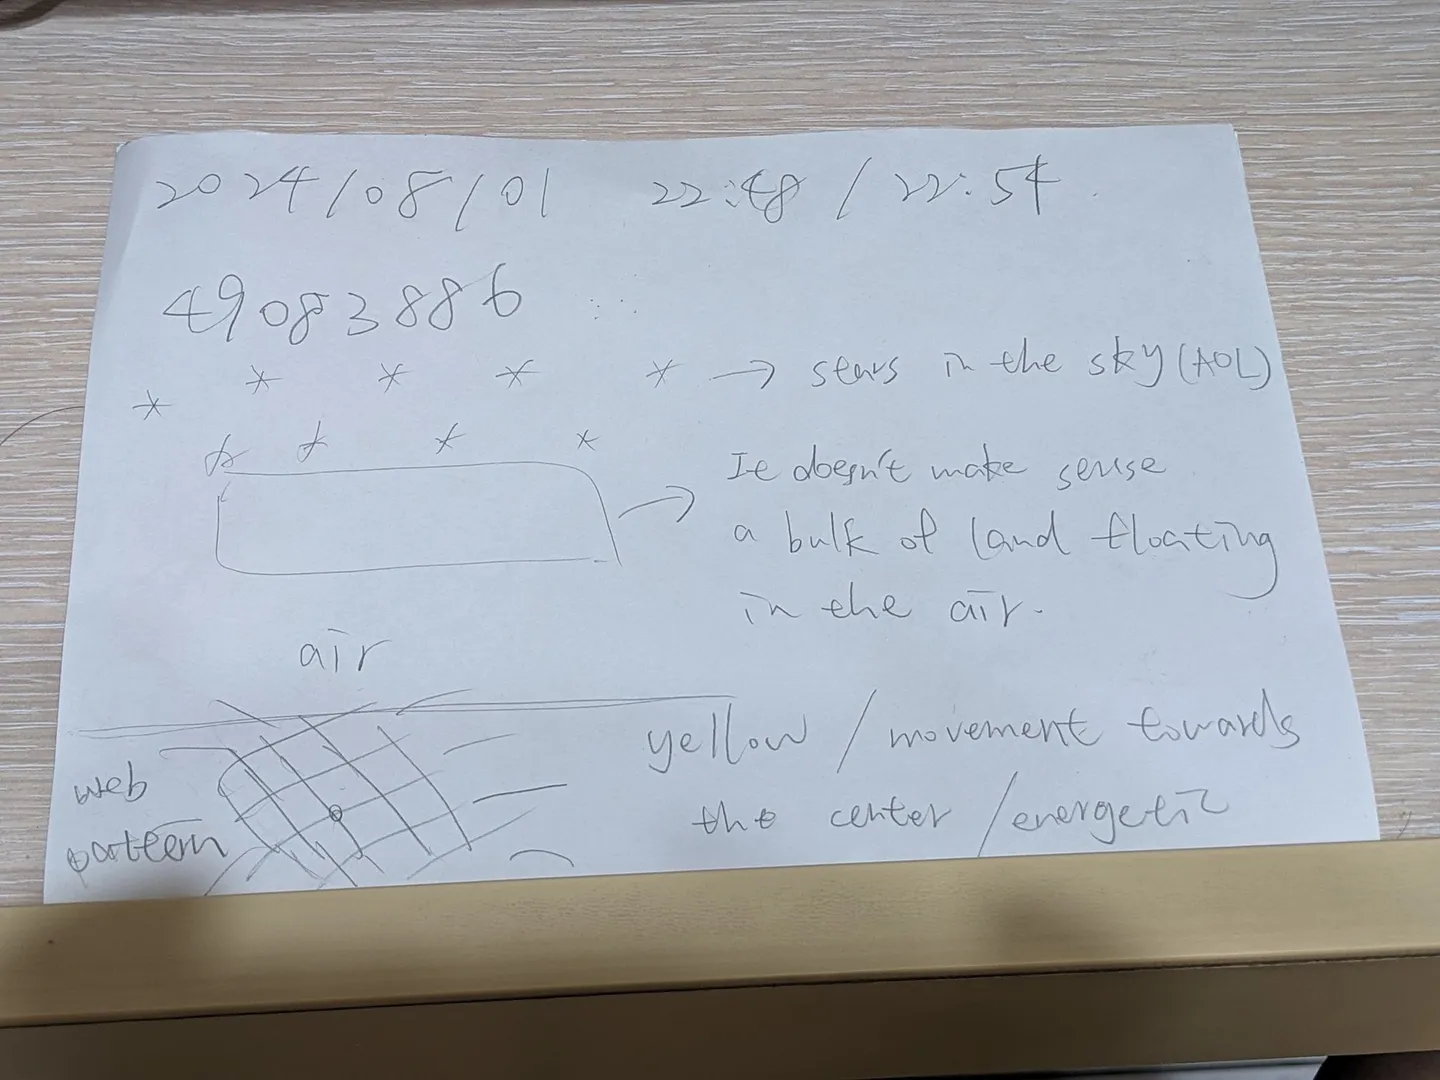 2024/08/01 22:48 / 22:54
49083886
→ stars in the sky (AOL)
→ It doesn't make sense
a bulk of land floating
in the air.
air
yellow / movement towards
the center / energetic
web
pattern